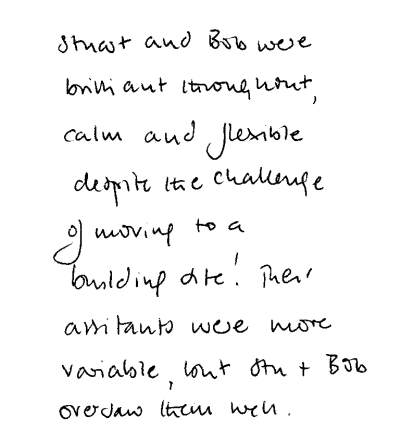 Stuart and Bob were
brilliant throughout,
calm and flexible
despite the challenge
of moving to a
building site! Their
assitants were more
variable, but Stu + Bob
oversaw them well.